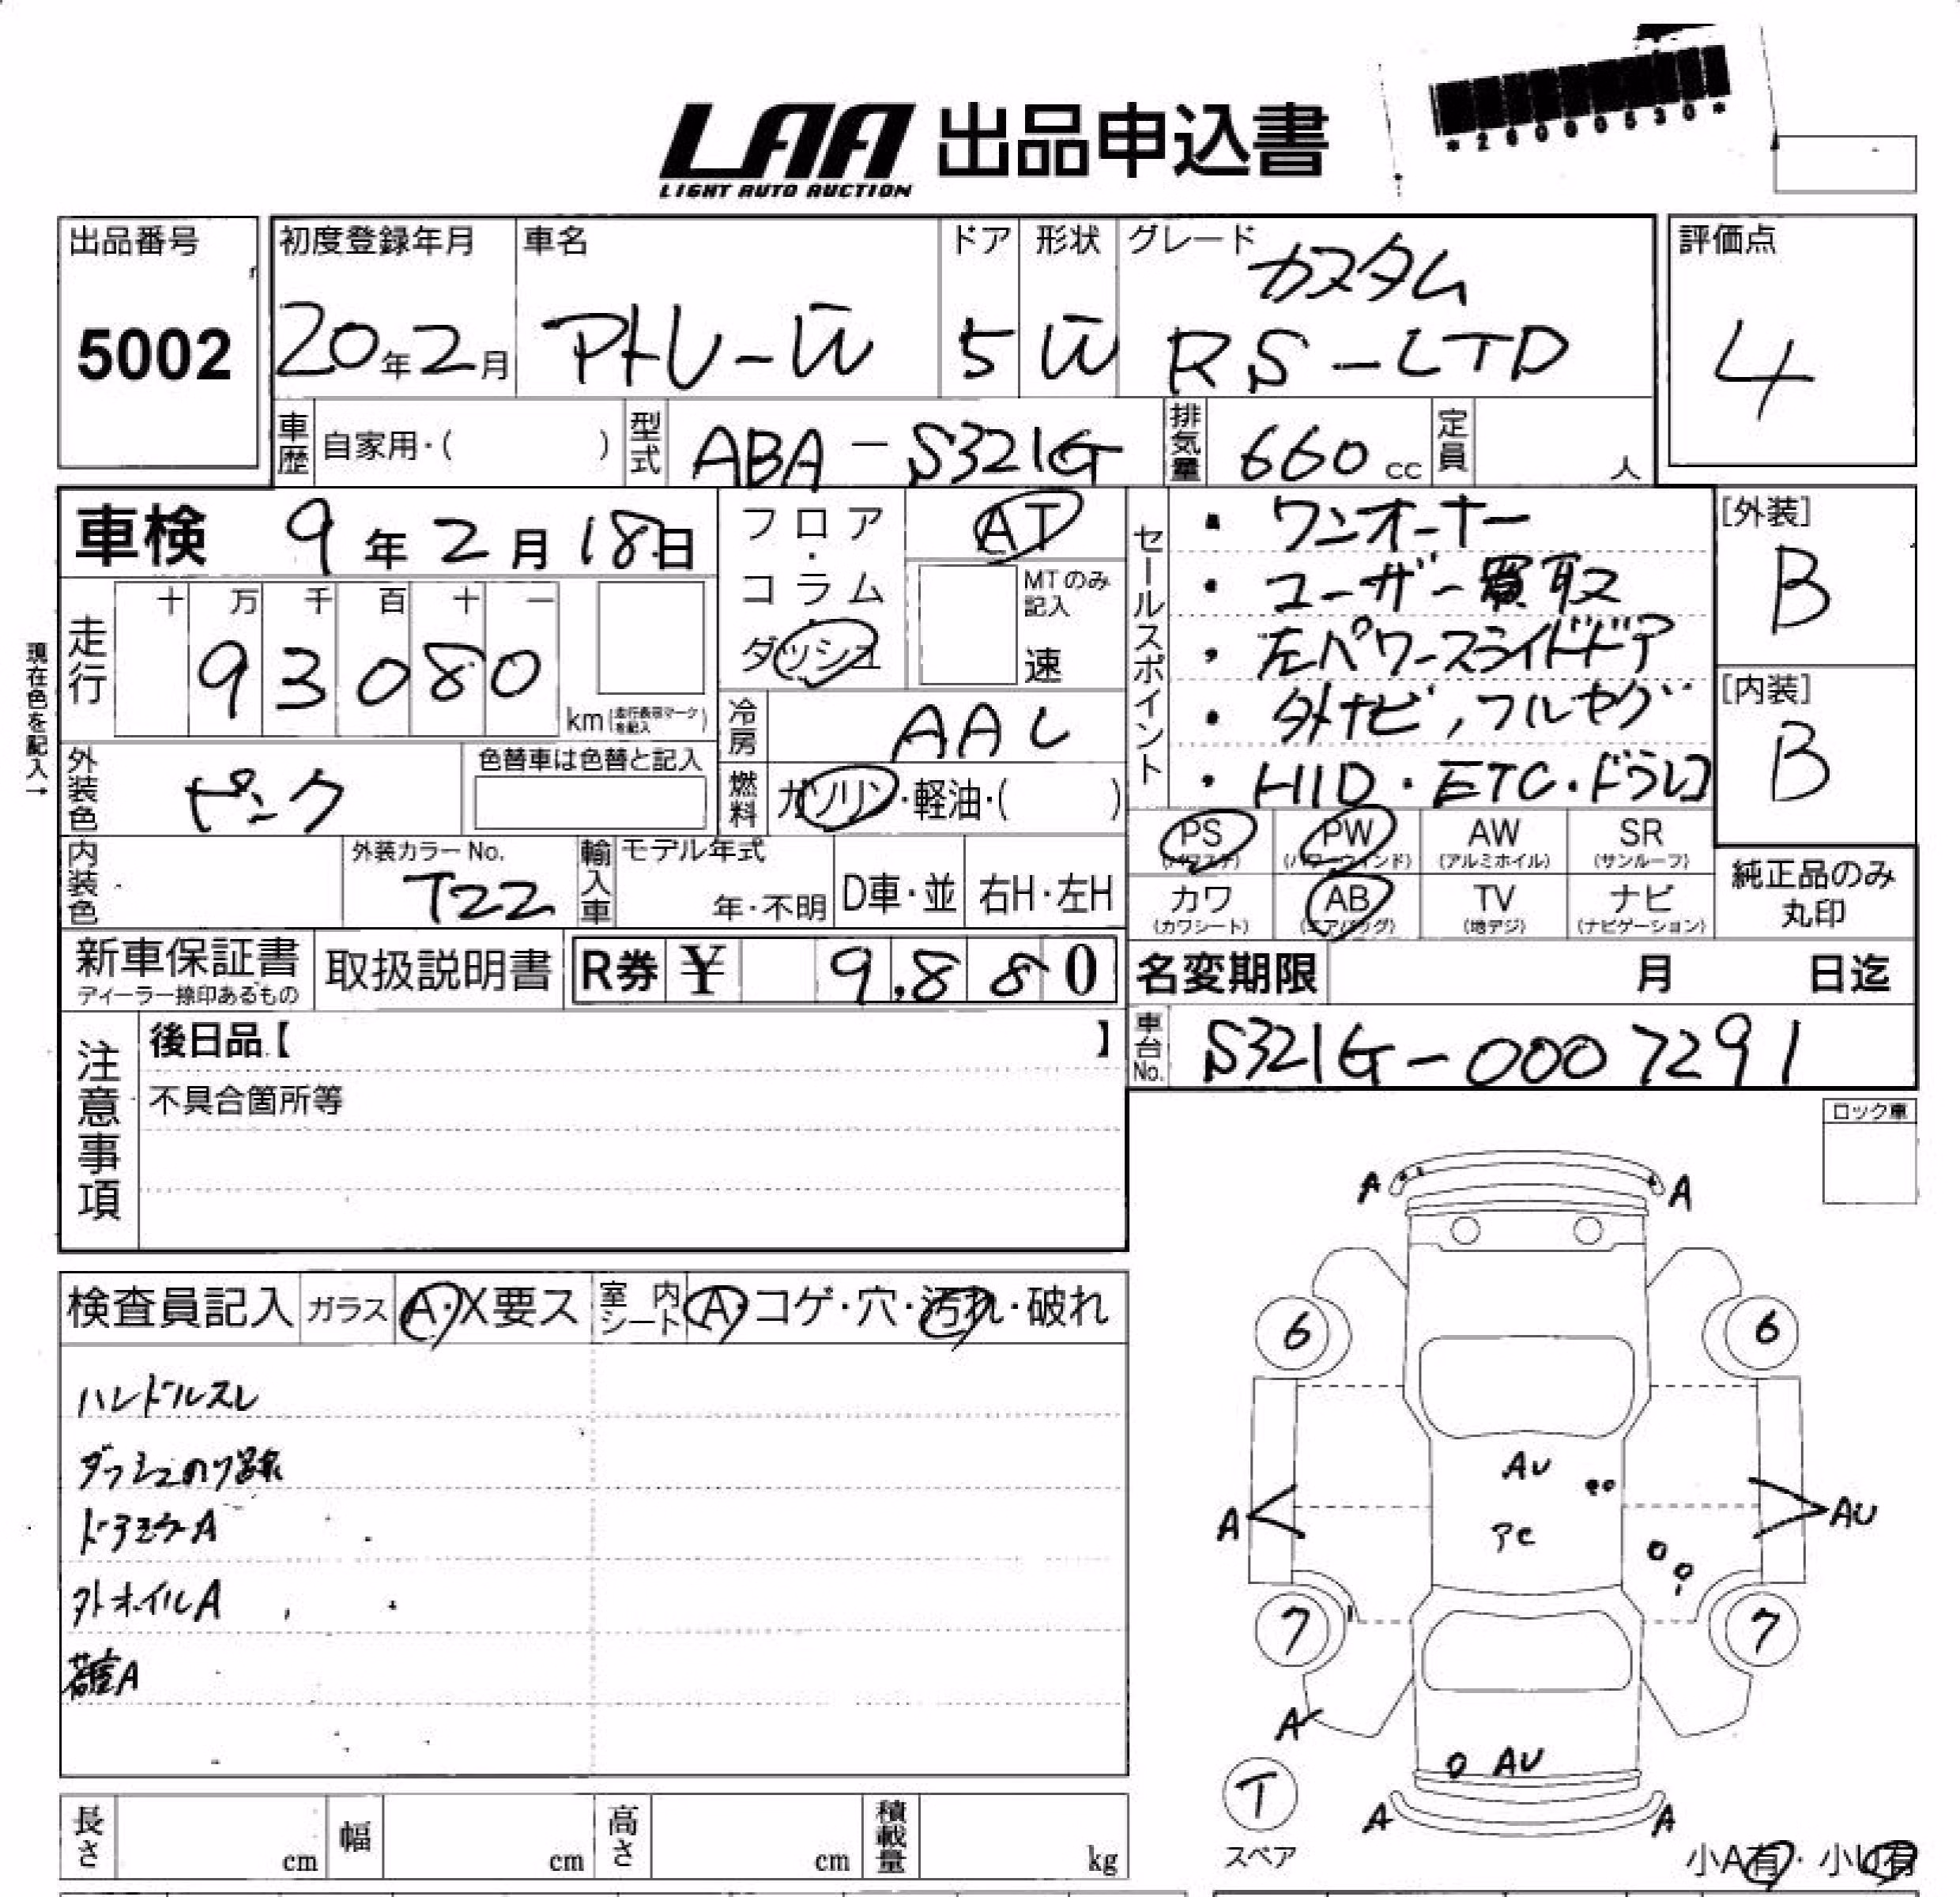 LAA 出品申込書
LIGHT AUTO AUCTION
出品番号
5002
初度登録年月
20年2月
車名
アトレーW
ドア
5
形状
W
グレード
カスタム
RS-LTD
評価点
4
車歴 自家用・( )
型式 ABA-S321G
排気量 660cc
定員 人
車検 9年2月18日
現在色を記入→
走行 十 万 千 百 十 一
93080
km(走行表示マークを記入)
フロア・コラム・ダッシュ
AT
MTのみ記入
速
冷房 AAC
燃料 ガソリン・軽油・( )
外装色 ピンク
色替車は色替と記入
内装色
外装カラーNo.
T22
輸入車 モデル年式
年・不明
D車・並
右H・左H
セールスポイント
・ワンオーナー
・ユーザー買取
・左パワースライドドア
・外ナビ,フルセグ
・HID・ETC・ドラレコ
[外装]
B
[内装]
B
PS (パワステ)
PW (パワーウィンド)
AW (アルミホイル)
SR (サンルーフ)
カワ (カワシート)
AB (エアバッグ)
TV (地デジ)
ナビ (ナビゲーション)
純正品のみ丸印
新車保証書
ディーラー捺印あるもの
取扱説明書
R券 ¥ 9,880
名変期限 月 日迄
車台No. S321G-0007291
注意事項
後日品【 】
不具合箇所等
ロック車
検査員記入
ガラス A・X要ス
室内シート A・コゲ・穴・汚れ・破れ
ハンドルスレ
ダッシュのリ跡
ドアミラーA
外ホイルA
荷室A
A A
6 6
AU
A AU
アセ
7 7
A
AU
T
スペア
A A
小A有・小U有
長さ cm
幅 cm
高さ cm
積載量 kg